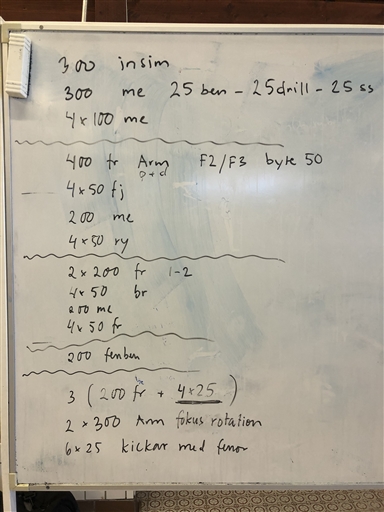 300 insim
300 me 25 ben - 25 drill - 25 ss
4x100 me
400 fr Arm F2/F3 byte 50
P+d
4x50 fj
200 me
4x50 ry
2x200 fr 1-2
4x50 br
200 me
4x50 fr
200 fenben
3 (200 fr + 4x25)
2x300 Arm fokus rotation
6x25 kickar med fenor